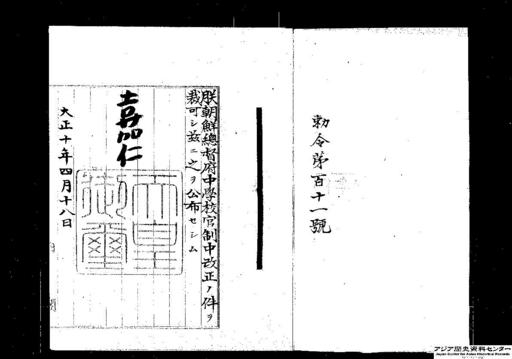 勅令第百十一號
朕朝鮮總督府中學校官制中改正ノ件ヲ
裁可シ茲ニ之ヲ公布セシム
嘉仁
天皇御璽
大正十年四月十八日
アジア歴史資料センター
Japan Center for Asian Historical Records